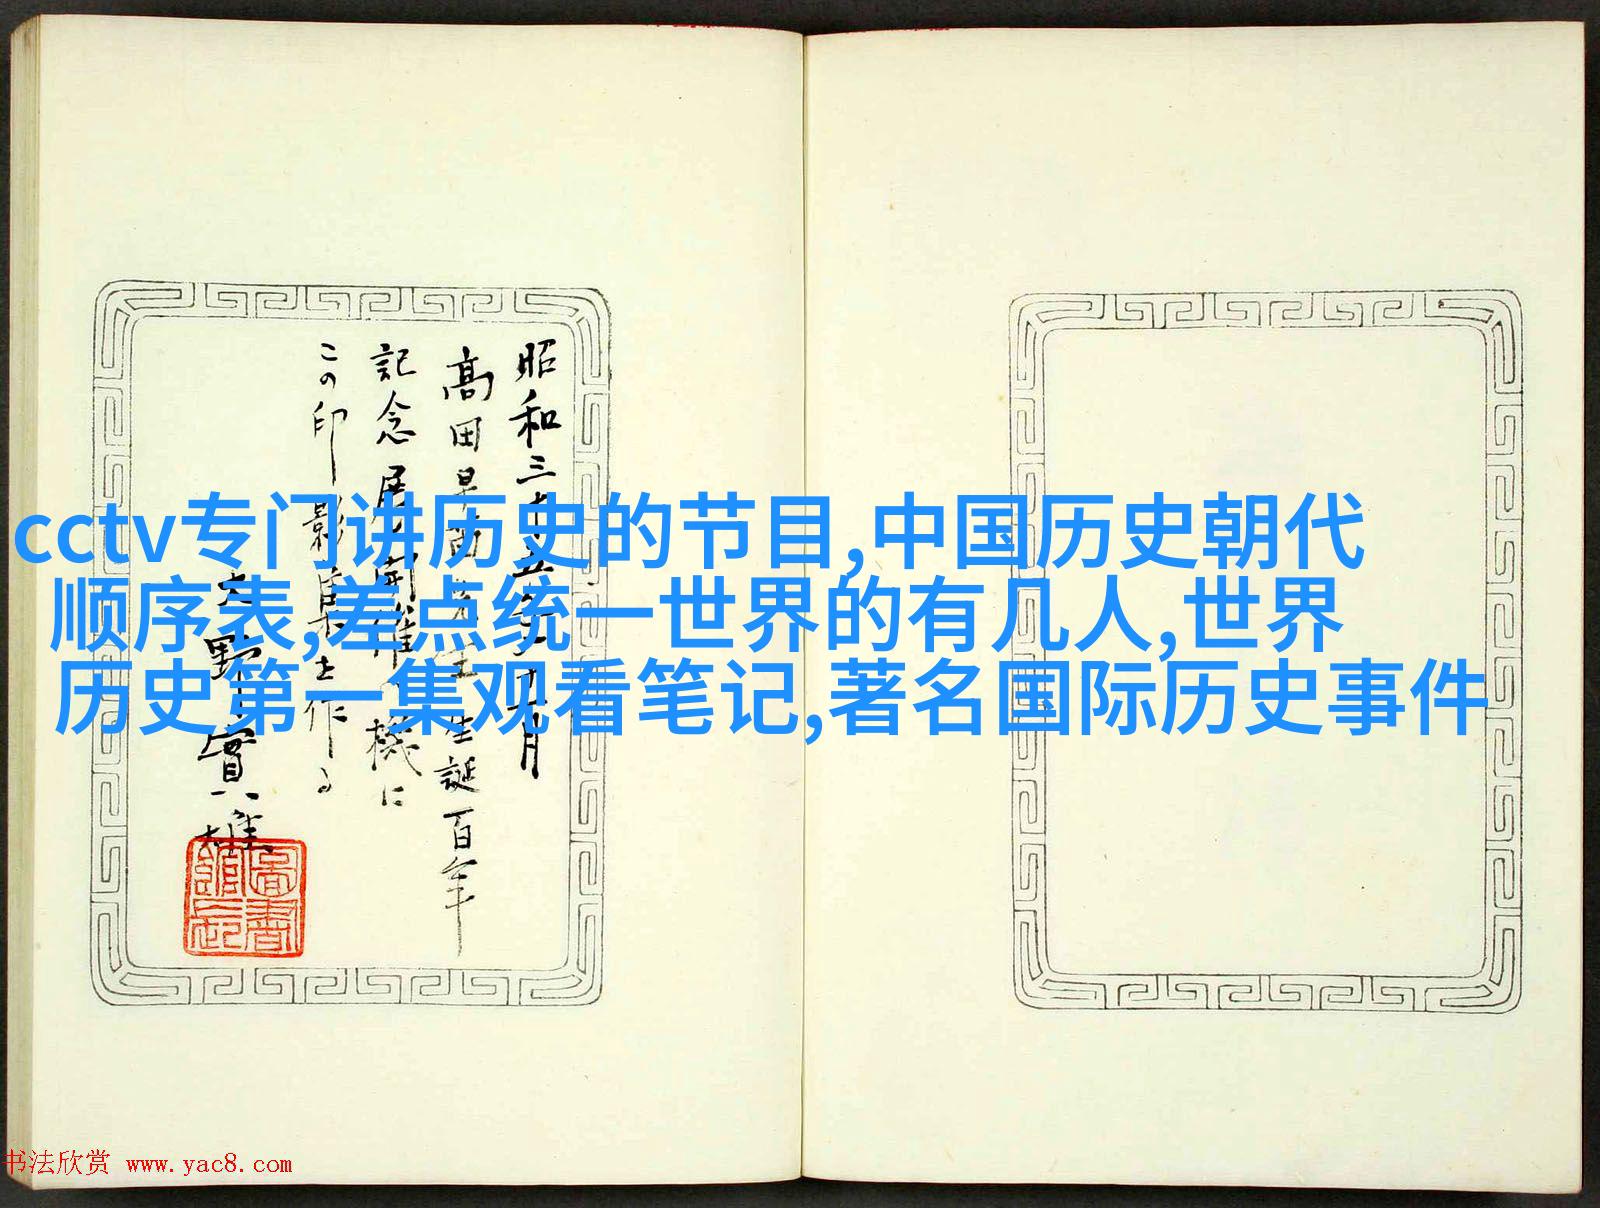 昭和三十五年十一月
高田早苗先生生誕百年
記念展開催の機に
この印影
大野實雄
圖書館長
cctv专门讲历史的节目,中国历史朝代
顺序表,差点统一世界的有几人,世界
历史第一集观看笔记,著名国际历史事件
书法欣赏 www.yac8.com